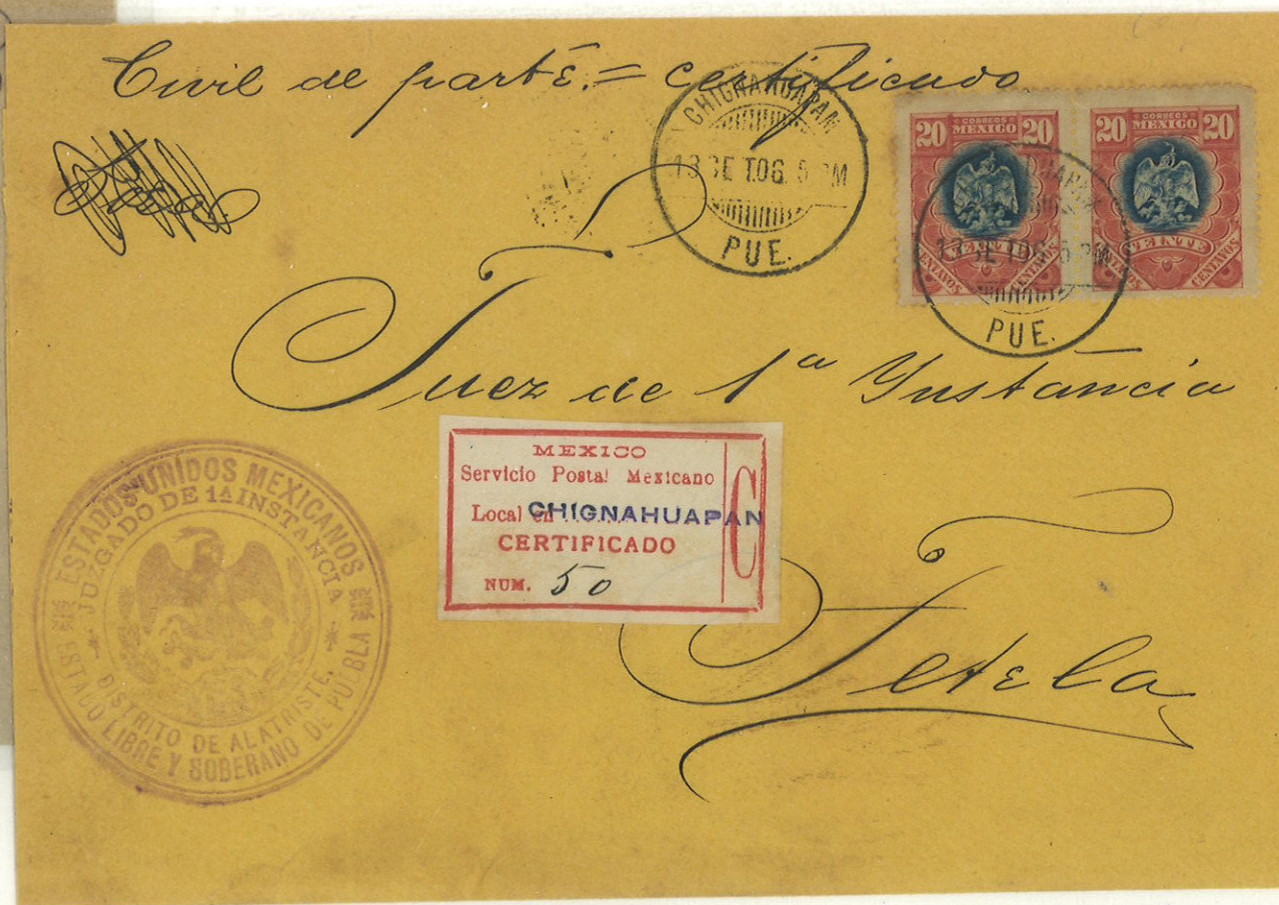 Civil de parte. = certificado
CHIGNAHUAPAN
13 SE T.06. 5 PM
PUE.
CORREOS
20 MEXICO 20
VEINTE
CENTAVOS
CORREOS
20 MEXICO 20
VEINTE
CENTAVOS CENTAVOS
13 SE T.06. 5 PM
PUE.
Juez de 1ª Ynstancia
MEXICO
Servicio Postal Mexicano
Local en CHIGNAHUAPAN
CERTIFICADO
NUM. 50
C
Tetela
ESTADOS UNIDOS MEXICANOS
JUZGADO DE 1ª INSTANCIA
DISTRITO DE ALATRISTE.
ESTADO LIBRE Y SOBERANO DE PUEBLA